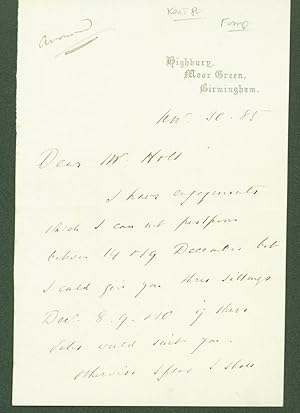 Highbury,
Moor Green,
Birmingham.
Nov. 30. 85
Dear Mr Holl
I have engagements
which I can not postpone
between 14 & 19 December but
I could give you three sittings
Dec. 8. 9. & 10 if these
dates would suit you.
Otherwise I fear I shall